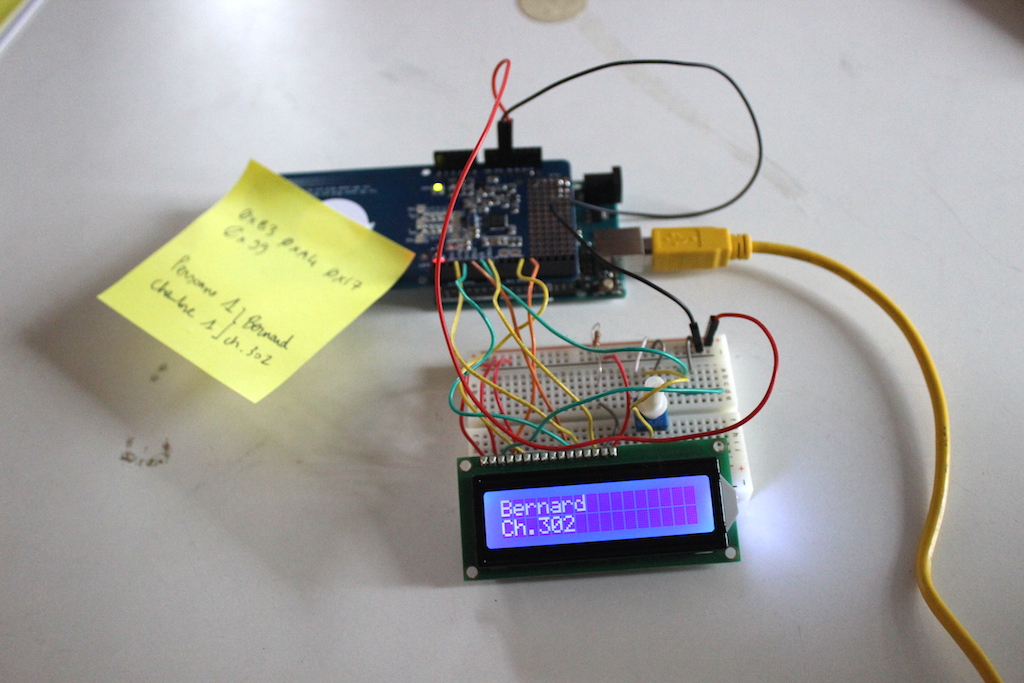 0xB3 0xA4 0x17
0x99
Personne 1 } Bernard
Chambre 1 } ch.302
Bernard
Ch.302